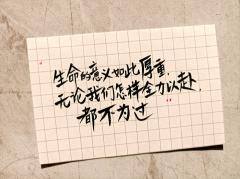 生命的意义如此厚重，
无论我们怎样全力以赴，
都不为过”